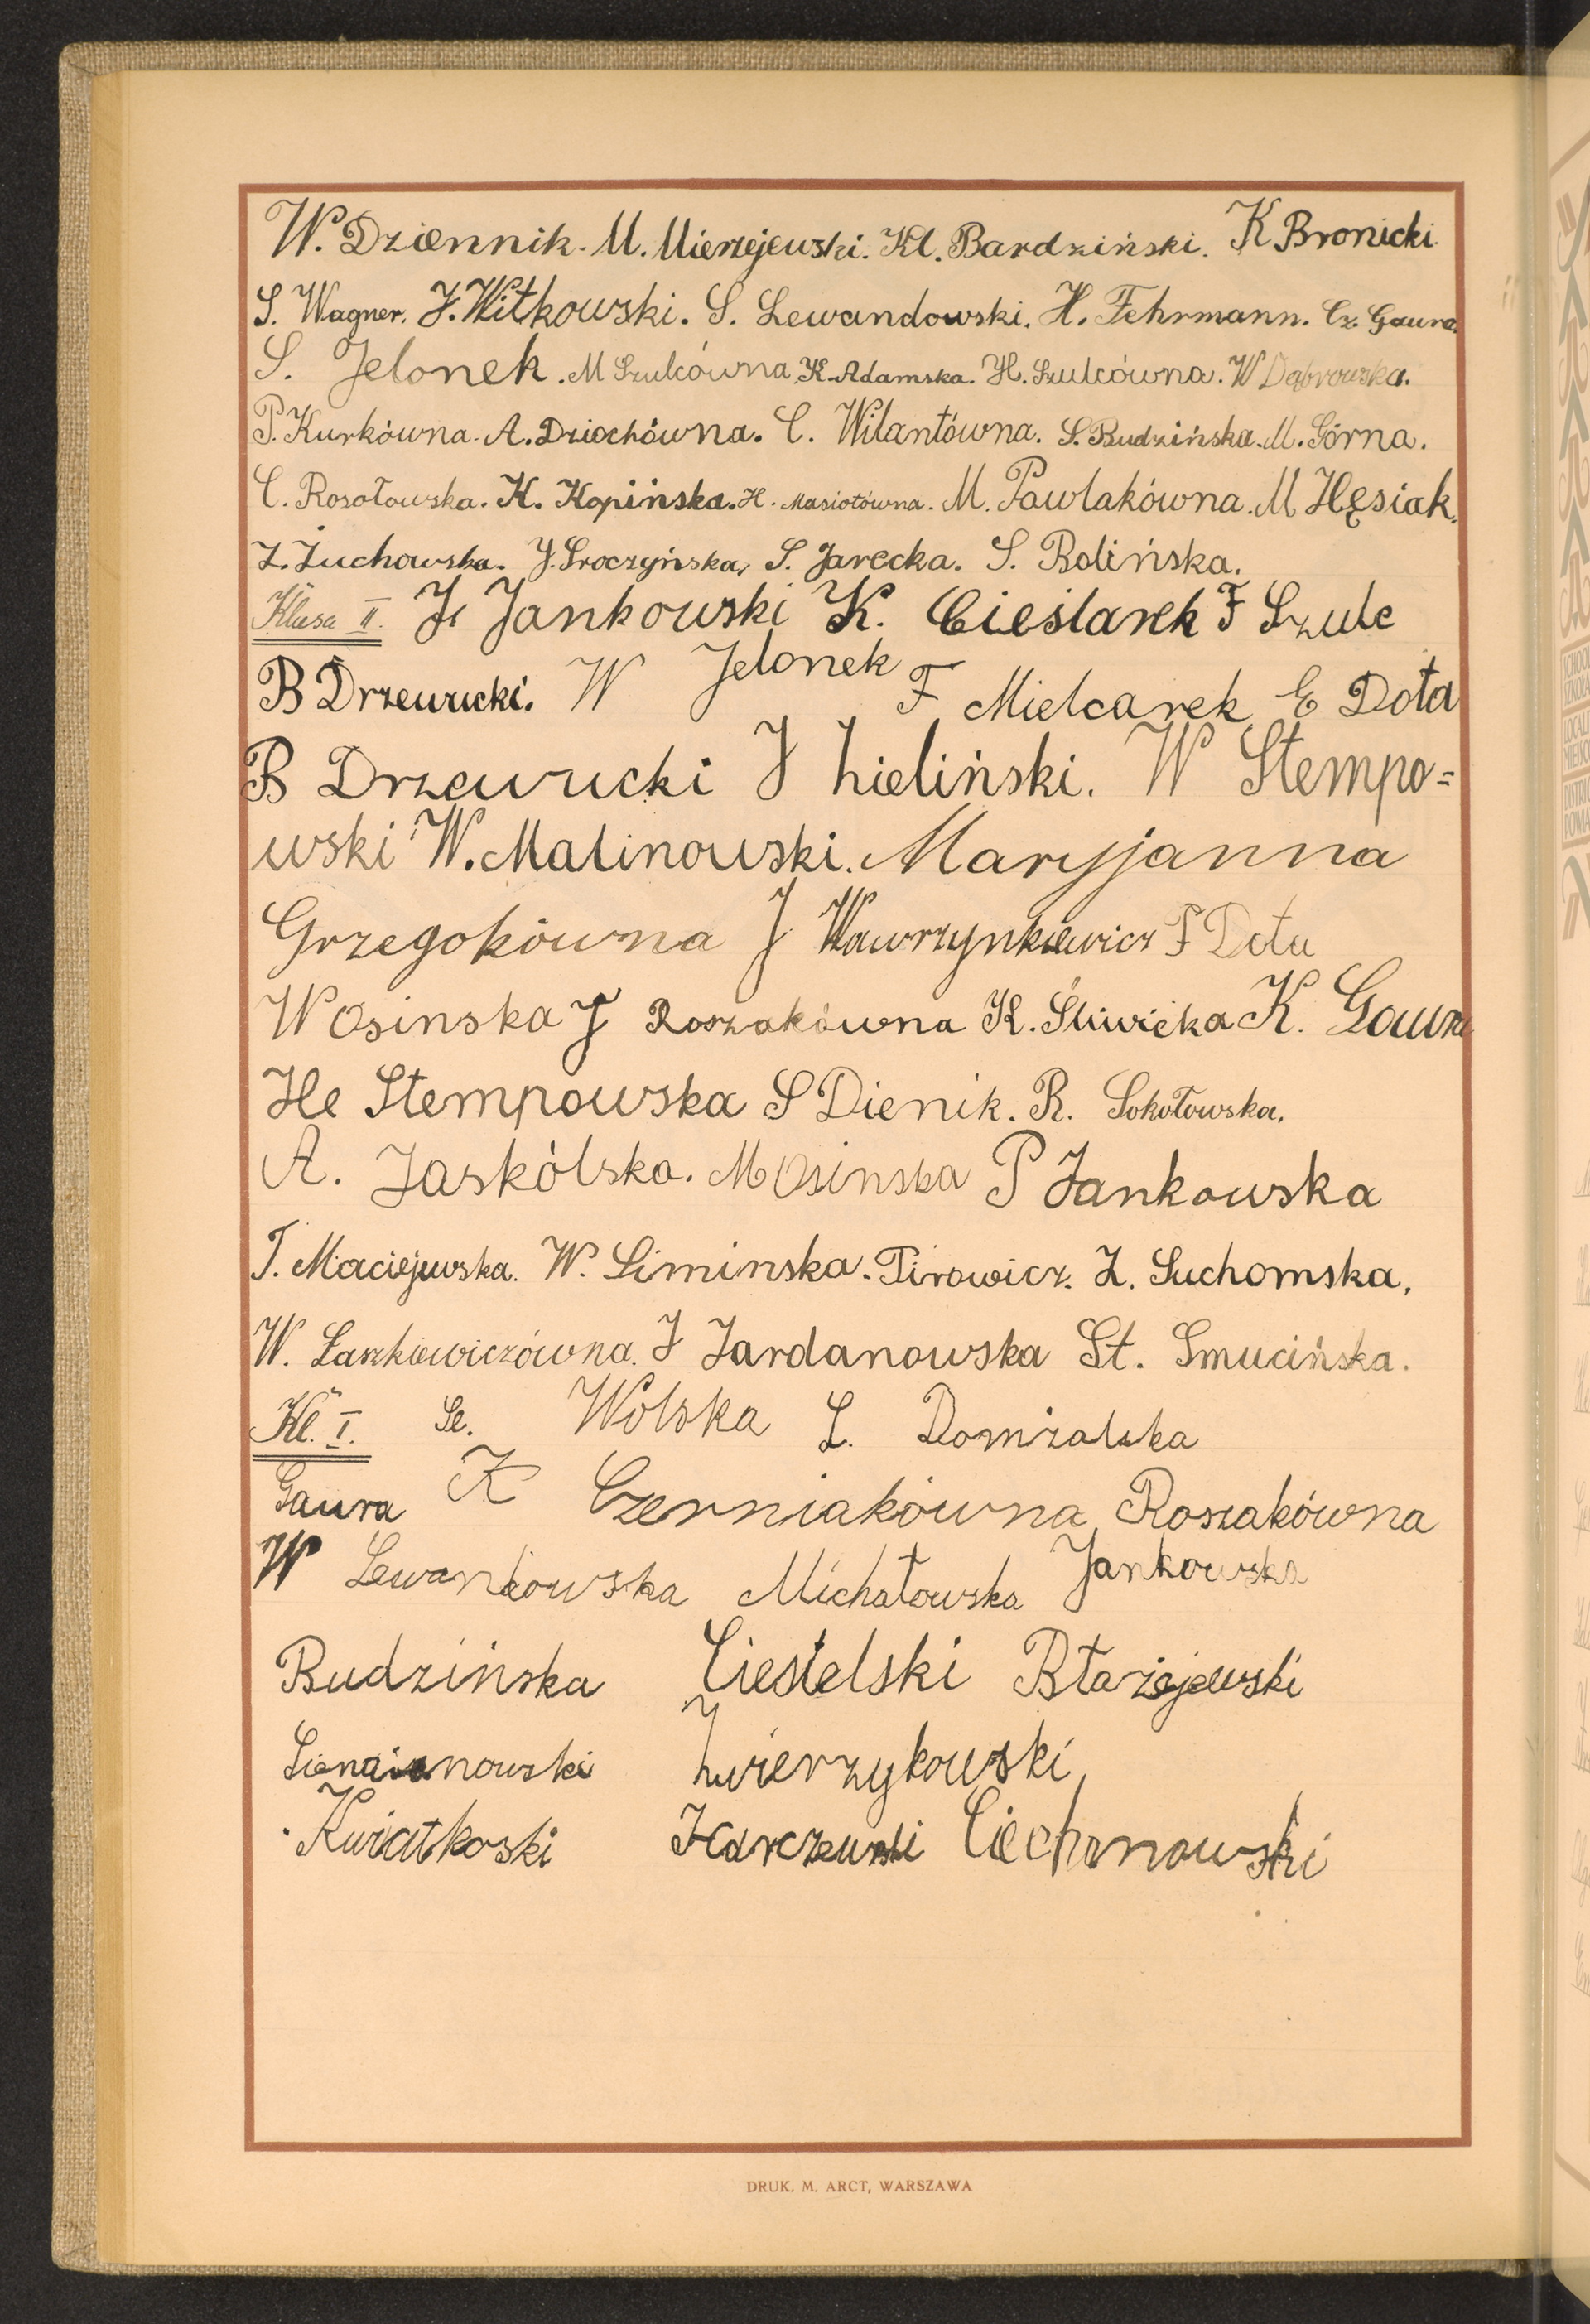 W. Dziennik. M. Mierzejewski. Kl. Bardziński. K Bronicki.
S. Wagner. J. Witkowski. S. Lewandowski. H. Fehrmann. Cz. Gaura.
S. Jelonek. M Szulcówna K. Adamska. H. Szulcówna. W Dąbrowska.
P. Kurkówna. A. Dziochówna. C. Wilantówna. S. Budzińska. M. Górna.
C. Rosołowska. K. Kopińska. H. Masiotówna. M. Pawlakówna. M Hęsiak.
Z. Żuchowska. J. Sroczyńska, S. Jarecka. S. Bolińska.
Klasa II. J. Jankowski K. Cieślarek F Szulc
B Drzewucki. W Jelonek F Mielcarek E Dota
B Drzewucki J Zieliński. W Stempo=
wski W. Malinowski. Maryjanna
Grzegokówna J Wawrzynkiewicz F Dota
W Osinska J Roszakówna K. Śliwicka K. Gaura
He Stempowska S Dienik. R. Sokołowska.
A. Jaskólska. M Osinska P Jankowska
T. Maciejewska. W. Siminska. Pirowicz. Z. Suchomska,
W. Laszkiewiczówna. J Jardanowska St. Smucińska.
Kl. I. Se. Wolska L. Domżalska
Gaura K Czerniakówna Roszakówna
W Lewandowska Michałowska Jankowska
Budzińska Ciesielski Błażejewski
Zwierzykowski
Kwiatkoski Karczewski Ciechonowski
DRUK. M. ARCT, WARSZAWA